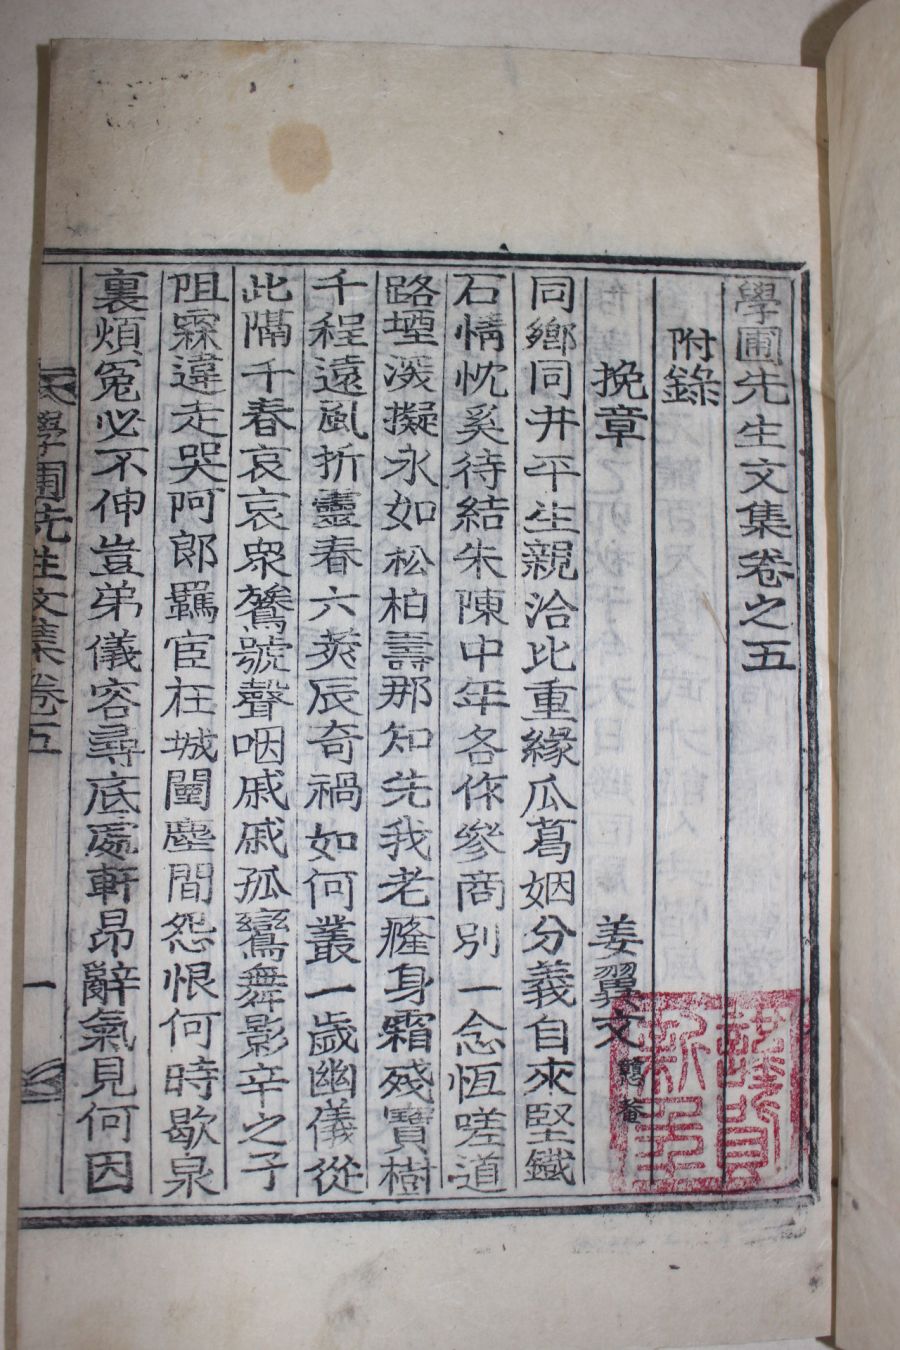 學圃先生文集卷之五
附錄
挽章
姜翼文 戇菴
同鄉同井平生親洽比重緣瓜葛姻分義自來堅鐵
石情忱奚待結朱陳中年各作參商別一念恆嗟道
路堙溪擬永如松柏壽那知先我老癃身霜殘寶樹
千程遠風折靈春六莢辰奇禍如何叢一歲幽儀從
此隔千春哀哀衆鷟號聲咽戚戚孤鸞舞影辛之子
阻霖違走哭阿郎羈宦枉城闉塵間怨恨何時歇泉
裏煩冤必不伸豈弟儀容尋底處軒昂辭氣見何因
學圃先生文集卷五
一